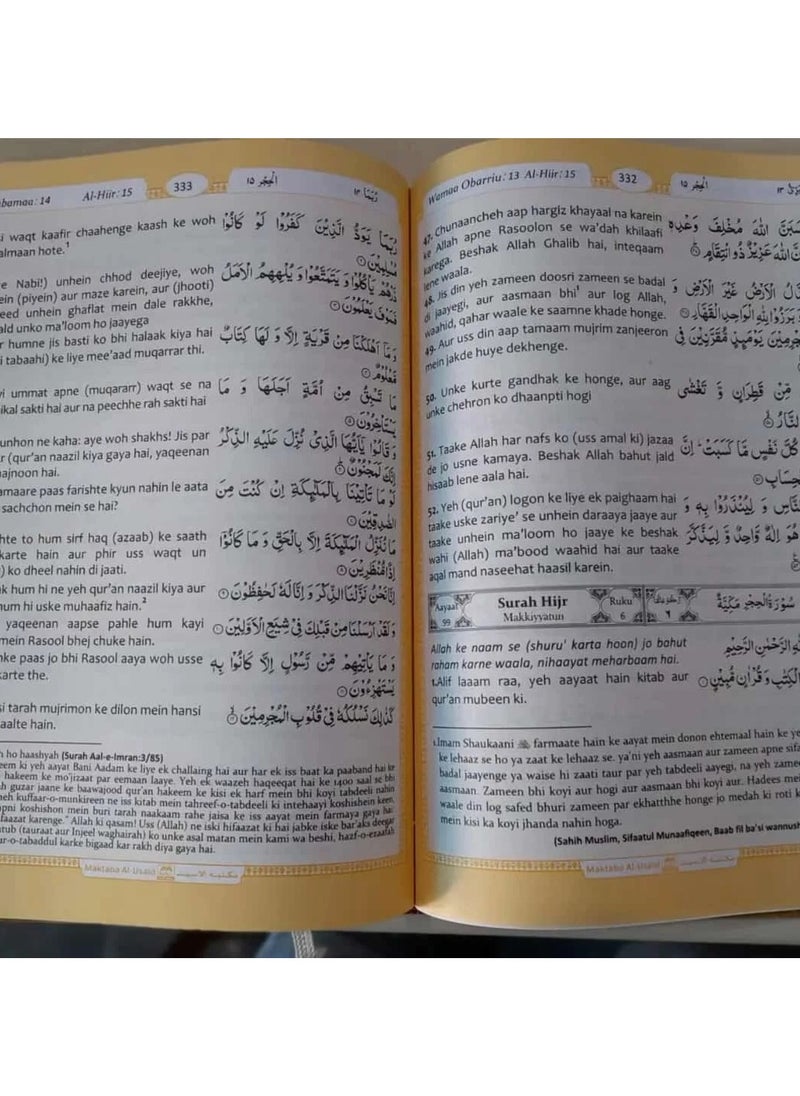 Wamaa Obarriu: 13 Al-Hijr: 15
332
الْحِجْر ١٥
47. Chunaancheh aap hargiz khayaal na karein
ke Allah apne Rasoolon se wa'dah khilaafi
karega. Beshak Allah Ghalib hai, inteqaam
lene waala.
48. Jis din yeh zameen doosri zameen se badal
di jaayegi, aur aasmaan bhi¹ aur log Allah,
waahid, qahar waale ke saamne khade honge.
49. Aur uss din aap tamaam mujrim zanjeeron
mein jakde huye dekhenge.
50. Unke kurte gandhak ke honge, aur aag
unke chehron ko dhaanpti hogi
51. Taake Allah har nafs ko (uss amal ki) jazaa
de jo usne kamaya. Beshak Allah bahut jald
hisaab lene aala hai.
52. Yeh (qur'an) logon ke liye ek paighaam hai
taake uske zariye' se unhein daraaya jaaye aur
taake unhein ma'loom ho jaaye ke beshak
wahi (Allah) ma'bood waahid hai aur taake
aqal mand naseehat haasil karein.
مُخْلِفَ وَعْدِهٖ
اللّٰهَ عَزِيْزٌ ذُو انْتِقَامٍ
الْاَرْضُ غَيْرَ الْاَرْضِ وَ
وَبَرَزُوْا لِلّٰهِ الْوَاحِدِ الْقَهَّارِ
يَوْمَىِٕذٍ مُّقَرَّنِيْنَ فِى
مِّنْ قَطِرَانٍ وَّ تَغْشٰى
النَّارُ
كُلَّ نَفْسٍ مَّا كَسَبَتْ اِنَّ
وَ لِيُنْذَرُوْا بِهٖ وَ
هُوَ اِلٰهٌ وَّاحِدٌ وَّ لِيَذَّكَّرَ
Aayaat
99
Surah Hijr
Makkiyyatun
Ruku
6
سُوْرَةُ الْحِجْرِ مَكِّيَّةٌ
Allah ke naam se (shuru' karta hoon) jo bahut
raham karne waala, nihaayat meharbaam hai.
1.Alif laaam raa, yeh aayaat hain kitab aur
qur'an mubeen ki.
الرَّحْمٰنِ الرَّحِيْمِ
الْكِتٰبِ وَ قُرْاٰنٍ مُّبِيْنٍ
1.Imam Shaukaani farmaate hain ke aayat mein donon ehtemaal hain ke
ke lehaaz se ho ya zaat ke lehaaz se. ya'ni yeh aasmaan aur zameen apne
badal jaayenge ya waise hi zaati taur par yeh tabdeeli aayegi, na yeh
aasmaan. Zameen bhi koyi aur hogi aur aasmaan bhi koyi aur. Hadees
waale din log safed bhuri zameen par ekhatthhe honge jo medah ki roti
mein kisi ka koyi jhanda nahin hoga.
(Sahih Muslim, Sifaatul Munaafiqeen, Baab fil ba'si
Maktaba Al-Usaid
Al-Hijr: 15
333
الْحِجْر ١٥
رُبَمَا ١٤
waqt kaafir chaahenge kaash ke woh
hote.¹
Nabi!) unhein chhod deejiye, woh
(piyein) aur maze karein, aur (jhooti)
unhein ghaflat mein dale rakkhe,
unko ma'loom ho jaayega
humne jis basti ko bhi halaak kiya hai
tabaahi) ke liye mee'aad muqarrar thi.
ummat apne (muqararr) waqt se na
sakti hai aur na peechhe rah sakti hai
ne kaha: aye woh shakhs! Jis par
(qur'an naazil kiya gaya hai, yaqeenan
hai.
paas farishte kyun nahin le aata
sachchon mein se hai?
to hum sirf haq (azaab) ke saath
karte hain aur phir uss waqt un
ko dheel nahin di jaati.
hum hi ne yeh qur'an naazil kiya aur
hum hi uske muhaafiz hain.²
yaqeenan aapse pahle hum kayi
mein Rasool bhej chuke hain.
paas jo bhi Rasool aaya woh usse
karte the.
tarah mujrimon ke dilon mein hansi
hain.
رُبَمَا يَوَدُّ الَّذِيْنَ كَفَرُوْا لَوْ كَانُوْا
مُسْلِمِيْنَ
ذَرْهُمْ يَاْكُلُوْا وَ يَتَمَتَّعُوْا وَ يُلْهِهِمُ الْاَمَلُ
فَسَوْفَ يَعْلَمُوْنَ
وَ مَاۤ اَهْلَكْنَا مِنْ قَرْيَةٍ اِلَّا وَ لَهَا كِتَابٌ
مَّعْلُوْمٌ
مَا تَسْبِقُ مِنْ اُمَّةٍ اَجَلَهَا وَ مَا
يَسْتَاْخِرُوْنَ
وَ قَالُوْا يٰۤاَيُّهَا الَّذِيْ نُزِّلَ عَلَيْهِ الذِّكْرُ
اِنَّكَ لَمَجْنُوْنٌ
لَوْ مَا تَاْتِيْنَا بِالْمَلٰٓىِٕكَةِ اِنْ كُنْتَ مِنَ
الصّٰدِقِيْنَ
مَا نُنَزِّلُ الْمَلٰٓىِٕكَةَ اِلَّا بِالْحَقِّ وَ مَا كَانُوْۤا
اِذًا مُّنْظَرِيْنَ
اِنَّا نَحْنُ نَزَّلْنَا الذِّكْرَ وَ اِنَّا لَهٗ لَحٰفِظُوْنَ
وَ لَقَدْ اَرْسَلْنَا مِنْ قَبْلِكَ فِيْ شِيَعِ الْاَوَّلِيْنَ
وَ مَا يَاْتِيْهِمْ مِّنْ رَّسُوْلٍ اِلَّا كَانُوْا بِهٖ
يَسْتَهْزِءُوْنَ
كَذٰلِكَ نَسْلُكُهٗ فِيْ قُلُوْبِ الْمُجْرِمِيْنَ
ho haashyah (Surah Aal-e-Imran:3/85)
ki yeh aayat Bani Aadam ke liye ek challaing hai aur har ek iss baat ka paaband hai ke
hakeem ke mo'jizaat par eemaan laaye. Yeh ek waazeh haqeeqat hai ke 1400 saal se bhi
guzar jaane ke baawajood qur'an hakeem ke kisi ek harf mein bhi koyi tabdeeli nahin
kuffaar-o-munkireen ne iss kitab mein tahreef-o-tabdeeli ki intehaayi koshishein keen,
koshishon mein buri tarah naakaam rahe jaisa ke iss aayat mein farmaya gaya hai:
karenge." Allah ki qasam! Uss (Allah) ne iski hifaazat ki hai jabke iske bar'aks deegar
(tauraat aur Injeel waghairah) ko unke asal matan mein kami wa beshi, hazf-o-ezaafah
tabaddul karke bigaad kar rakh diya gaya hai.
Maktaba Al-Usaid